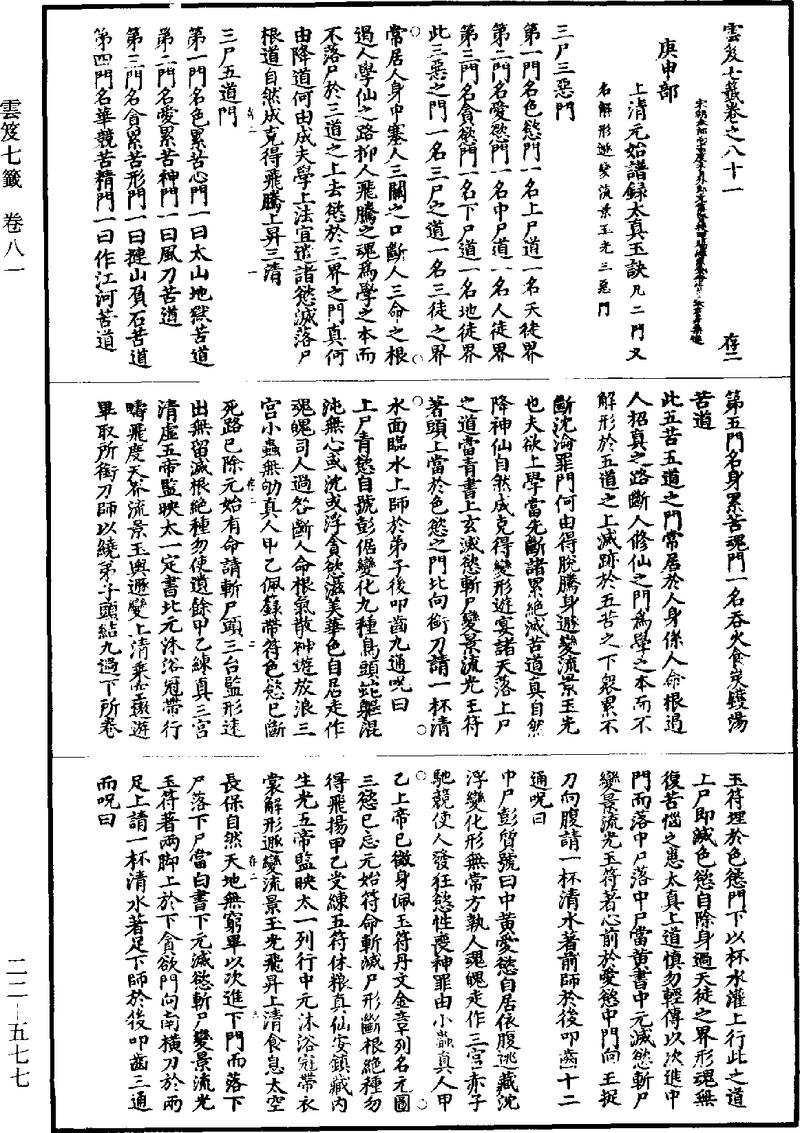 雲笈七籤 卷八一
二二—五七七
雲笈七籤卷之八十一 存二
庚申部
上清元始譜錄太真玉訣凡二門又
名解形遯變流景玉光三惡門
三尸三惡門
第一門名色慾門一名上尸道一名天徒界
第二門名愛慾門一名中尸道一名人徒界
第三門名貪慾門一名下尸道一名地徒界
此三惡之門一名三尸之道一名三徒之界
常居人身中塞人三關之口斷人三命之根
遏人學仙之路抑人飛騰之魂爲學之本而
不落尸於三道之上去慾於三界之門真何
由降道何由成夫學上法宜遣諸慾滅落尸
根道自然成克得飛騰上昇三清
三尸五道門
第一門名色累苦心門一曰太山地獄苦道
第二門名愛累苦神門一曰風刀苦道
第三門名貪累苦形門一曰揵山負石苦道
第四門名華競苦精門一曰作江河苦道
第五門名身累苦魂門一名吞火食炭鑊湯
苦道
此五苦五道之門常居於人身係人命根遏
人招真之路斷人修仙之門爲學之本而不
解形於五道之上滅跡於五苦之下衆累不
斷沈淪罪門何由得脫騰身遯變流景玉光
也夫欲上學當先斷諸累絕滅苦道真自然
降神仙自然成克得變形遊宴諸天落上尸
之道當青書上玄滅慾斬尸變景流光玉符
著頭上當於色慾之門北向銜刀請一杯清
水面臨水上師於弟子後叩齒九通呪曰
上尸青慾自號彭倨變化九種鳥頭蛇軀混
沌無心或沈或浮貪慾滋美華色自居走作
魂魄司人過咎斷人命根氣散神遊放浪三
宮小蟲無効真人甲乙佩籙帶符色慾已斷
死路已除元始有命請斬尸頭三台監形速
出無留滅根絕種勿使遺餘甲乙練真三宮
清虛五帝監映太一定書北元沐浴冠帶行
疇飛慶天界流景玉輿遯變上清乘空遠遊
畢取所銜刀師以繞弟子頭結九過下所卷
玉符埋於色慾門下以杯水灌上行此之道
上尸即滅色慾自除身過天徒之界形魂無
復苦惱之患太真上道慎勿輕傳以次進中
門而落中尸落中尸當黃書中元滅慾斬尸
變景流光玉符著心前於愛慾中門向王捉
刀向腹請一杯清水著前師於後叩齒十二
通呪曰
中尸彭質號曰中黃愛慾自居依腹逃藏沈
浮變化形無常方執人魂魄走作三宮赤子
馳競使人發狂慾性喪神罪由小蟲真人甲
乙上帝已徵身佩玉符丹文金章列名元圖
三慾已忘元始符命斬滅尸形斷根絕種勿
得飛揚甲乙受練五符休糧真仙安鎮藏內
生光五帝監映太一列行中元沐浴冠帶衣
裳解形遯變流景玉光飛昇上清食息太空
長保自然天地無窮畢以次進下門而落下
尸落下尸當白書下元滅慾斬尸變景流光
玉符著兩脚上於下貪欲門向南橫刀於兩
足上請一杯清水著足下師於後叩齒三通
而呪曰